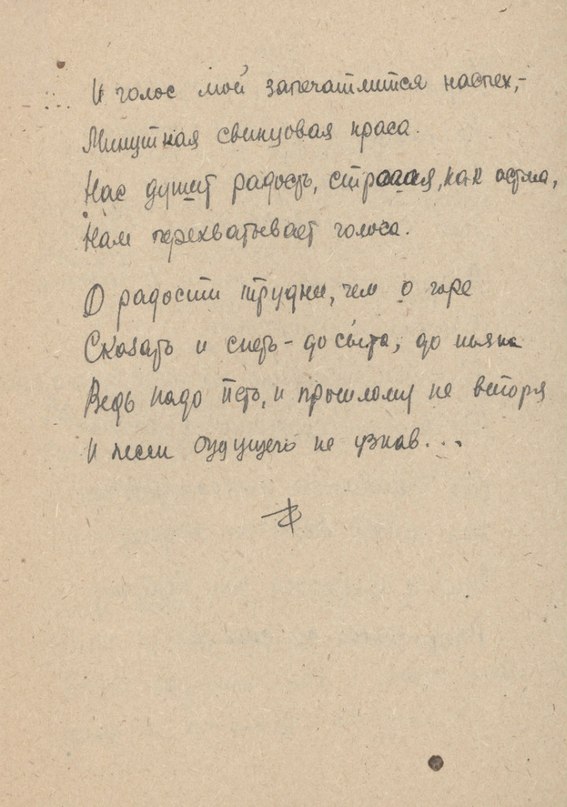 И голос мой запечатлится наспех, –
Минутная свинцовая краса.
Нас душит радость, как астма,
Нам перехватывает голоса.
О радости трудней, чем о горе
Сказать и спеть – досыта, до пьяна
Ведь надо петь, и прошлому не вторя
И песни будущего не узнав...